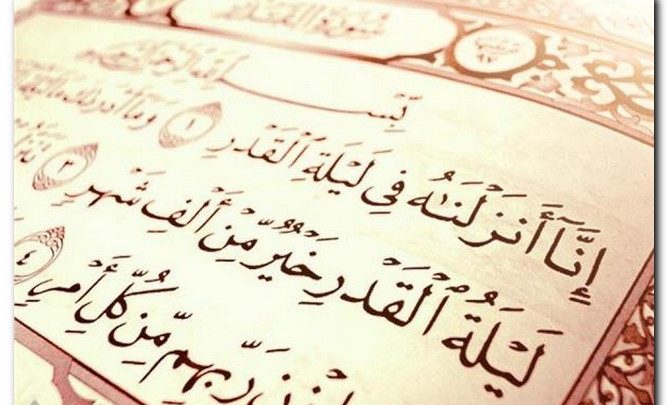 سُورَةُ القَدْرِ
بِسْمِ اللَّهِ الرَّحْمَٰنِ الرَّحِيمِ
إِنَّآ أَنزَلْنَٰهُ فِى لَيْلَةِ ٱلْقَدْرِ ١ وَمَآ أَدْرَىٰكَ مَا
لَيْلَةُ ٱلْقَدْرِ خَيْرٌ مِّنْ أَلْفِ شَهْرٍ ٣
رَبِّهِم مِّن كُلِّ أَمْرٍ ٤